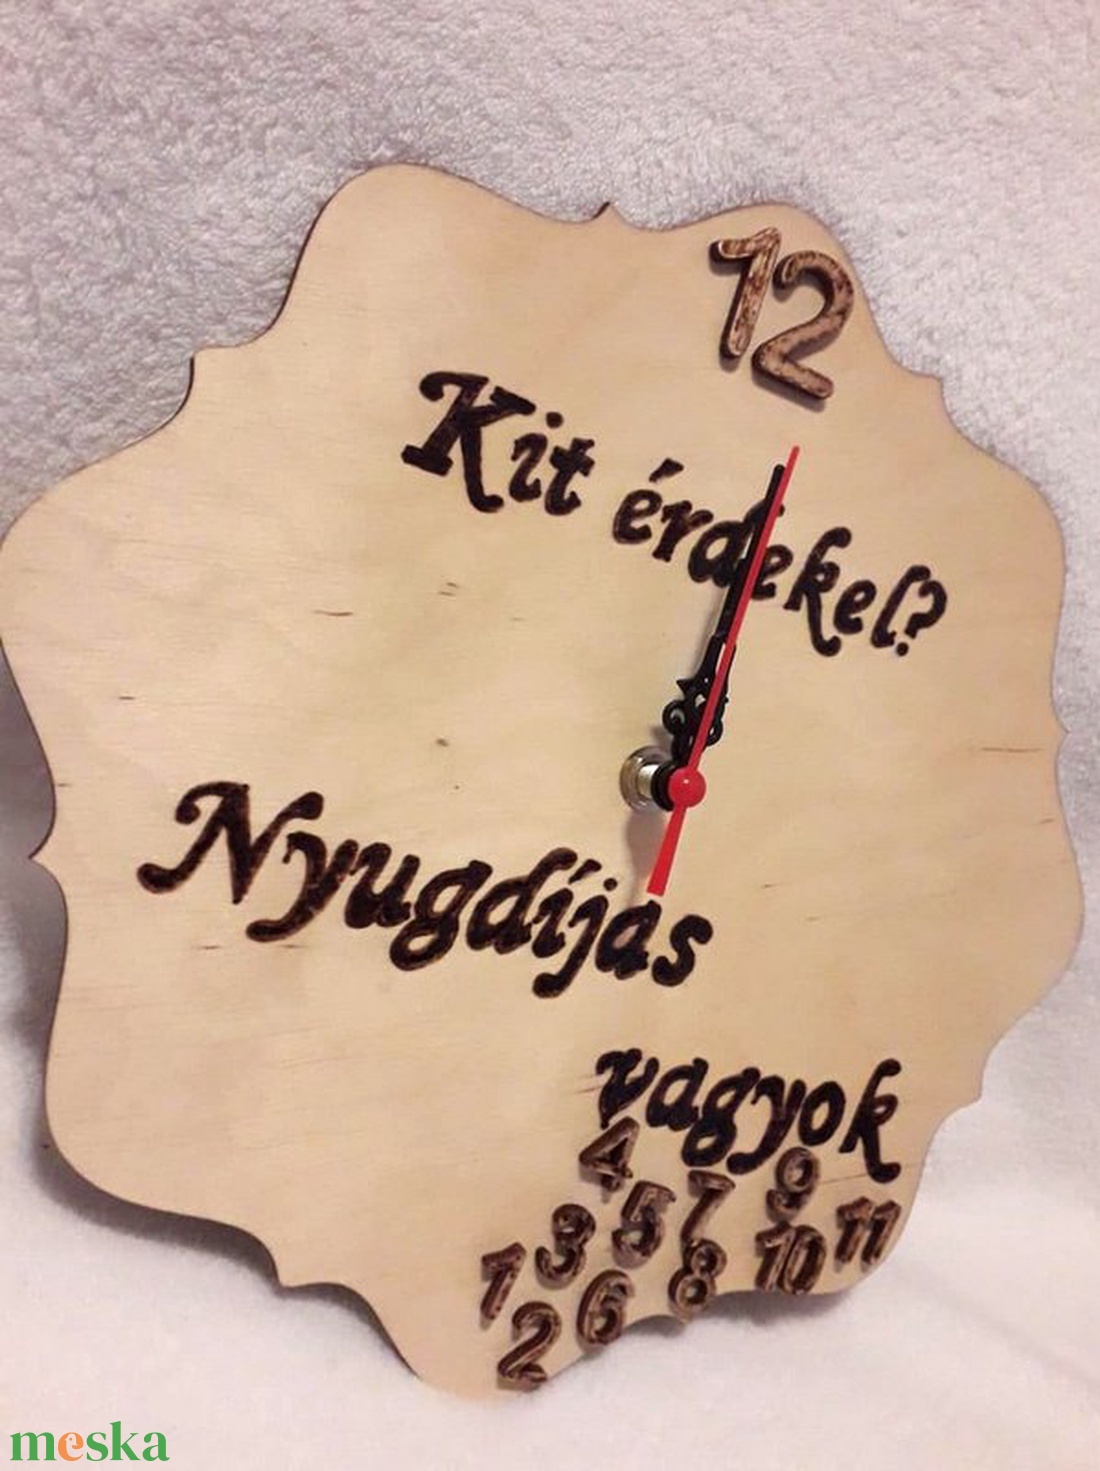 12
Kit érdekel?
Nyugdíjas
vagyok
4 5 7 9
1 3 8 10 11
2 6
meska